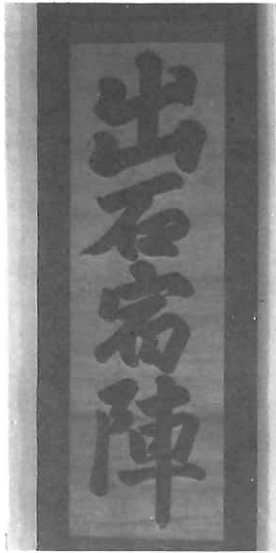 出石宿陣